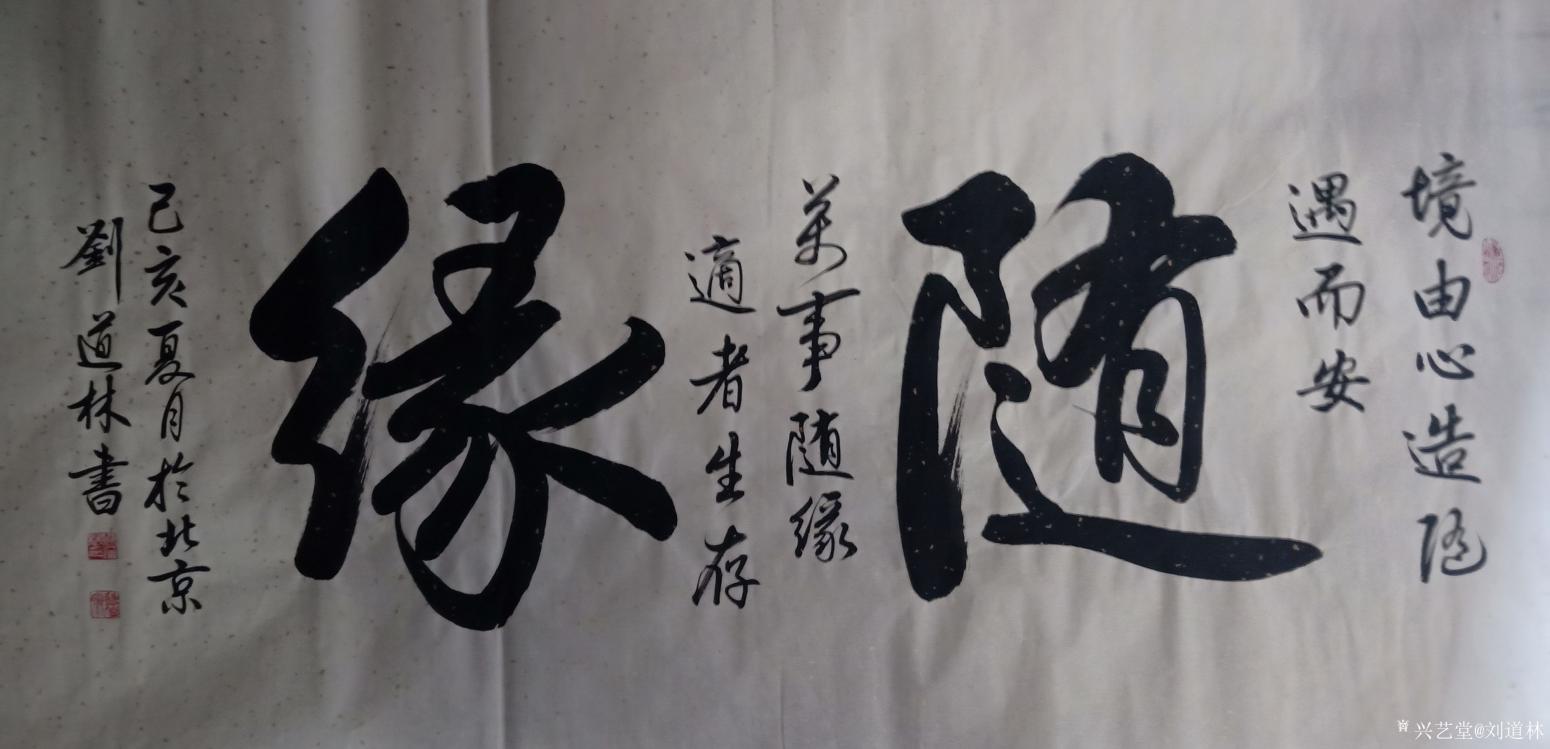 境由心造随
遇而安
随
万事随缘
適者生存
缘
己亥夏月於北京
劉道林書
兴艺堂@刘道林